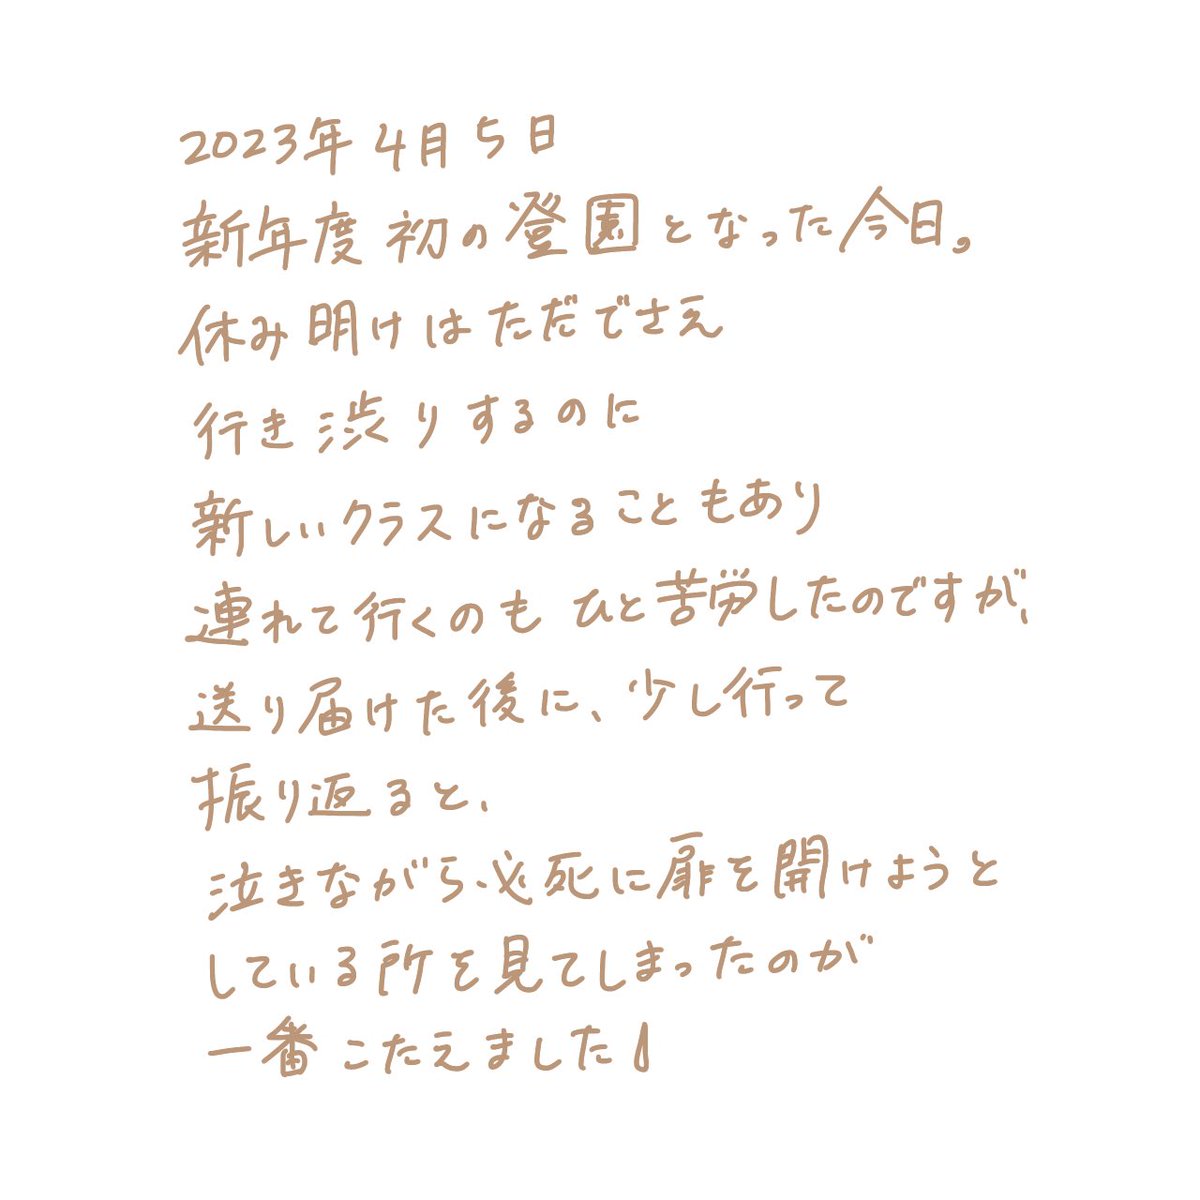 2023年4月5日
新年度初の登園となった今日。
休み明けはただでさえ
行き渋りするのに
新しいクラスになることもあり
連れて行くのもひと苦労したのですが、
送り届けた後に、少し行って
振り返ると、
泣きながら必死に扉を開けようと
している所を見てしまったのが
一番こたえました!